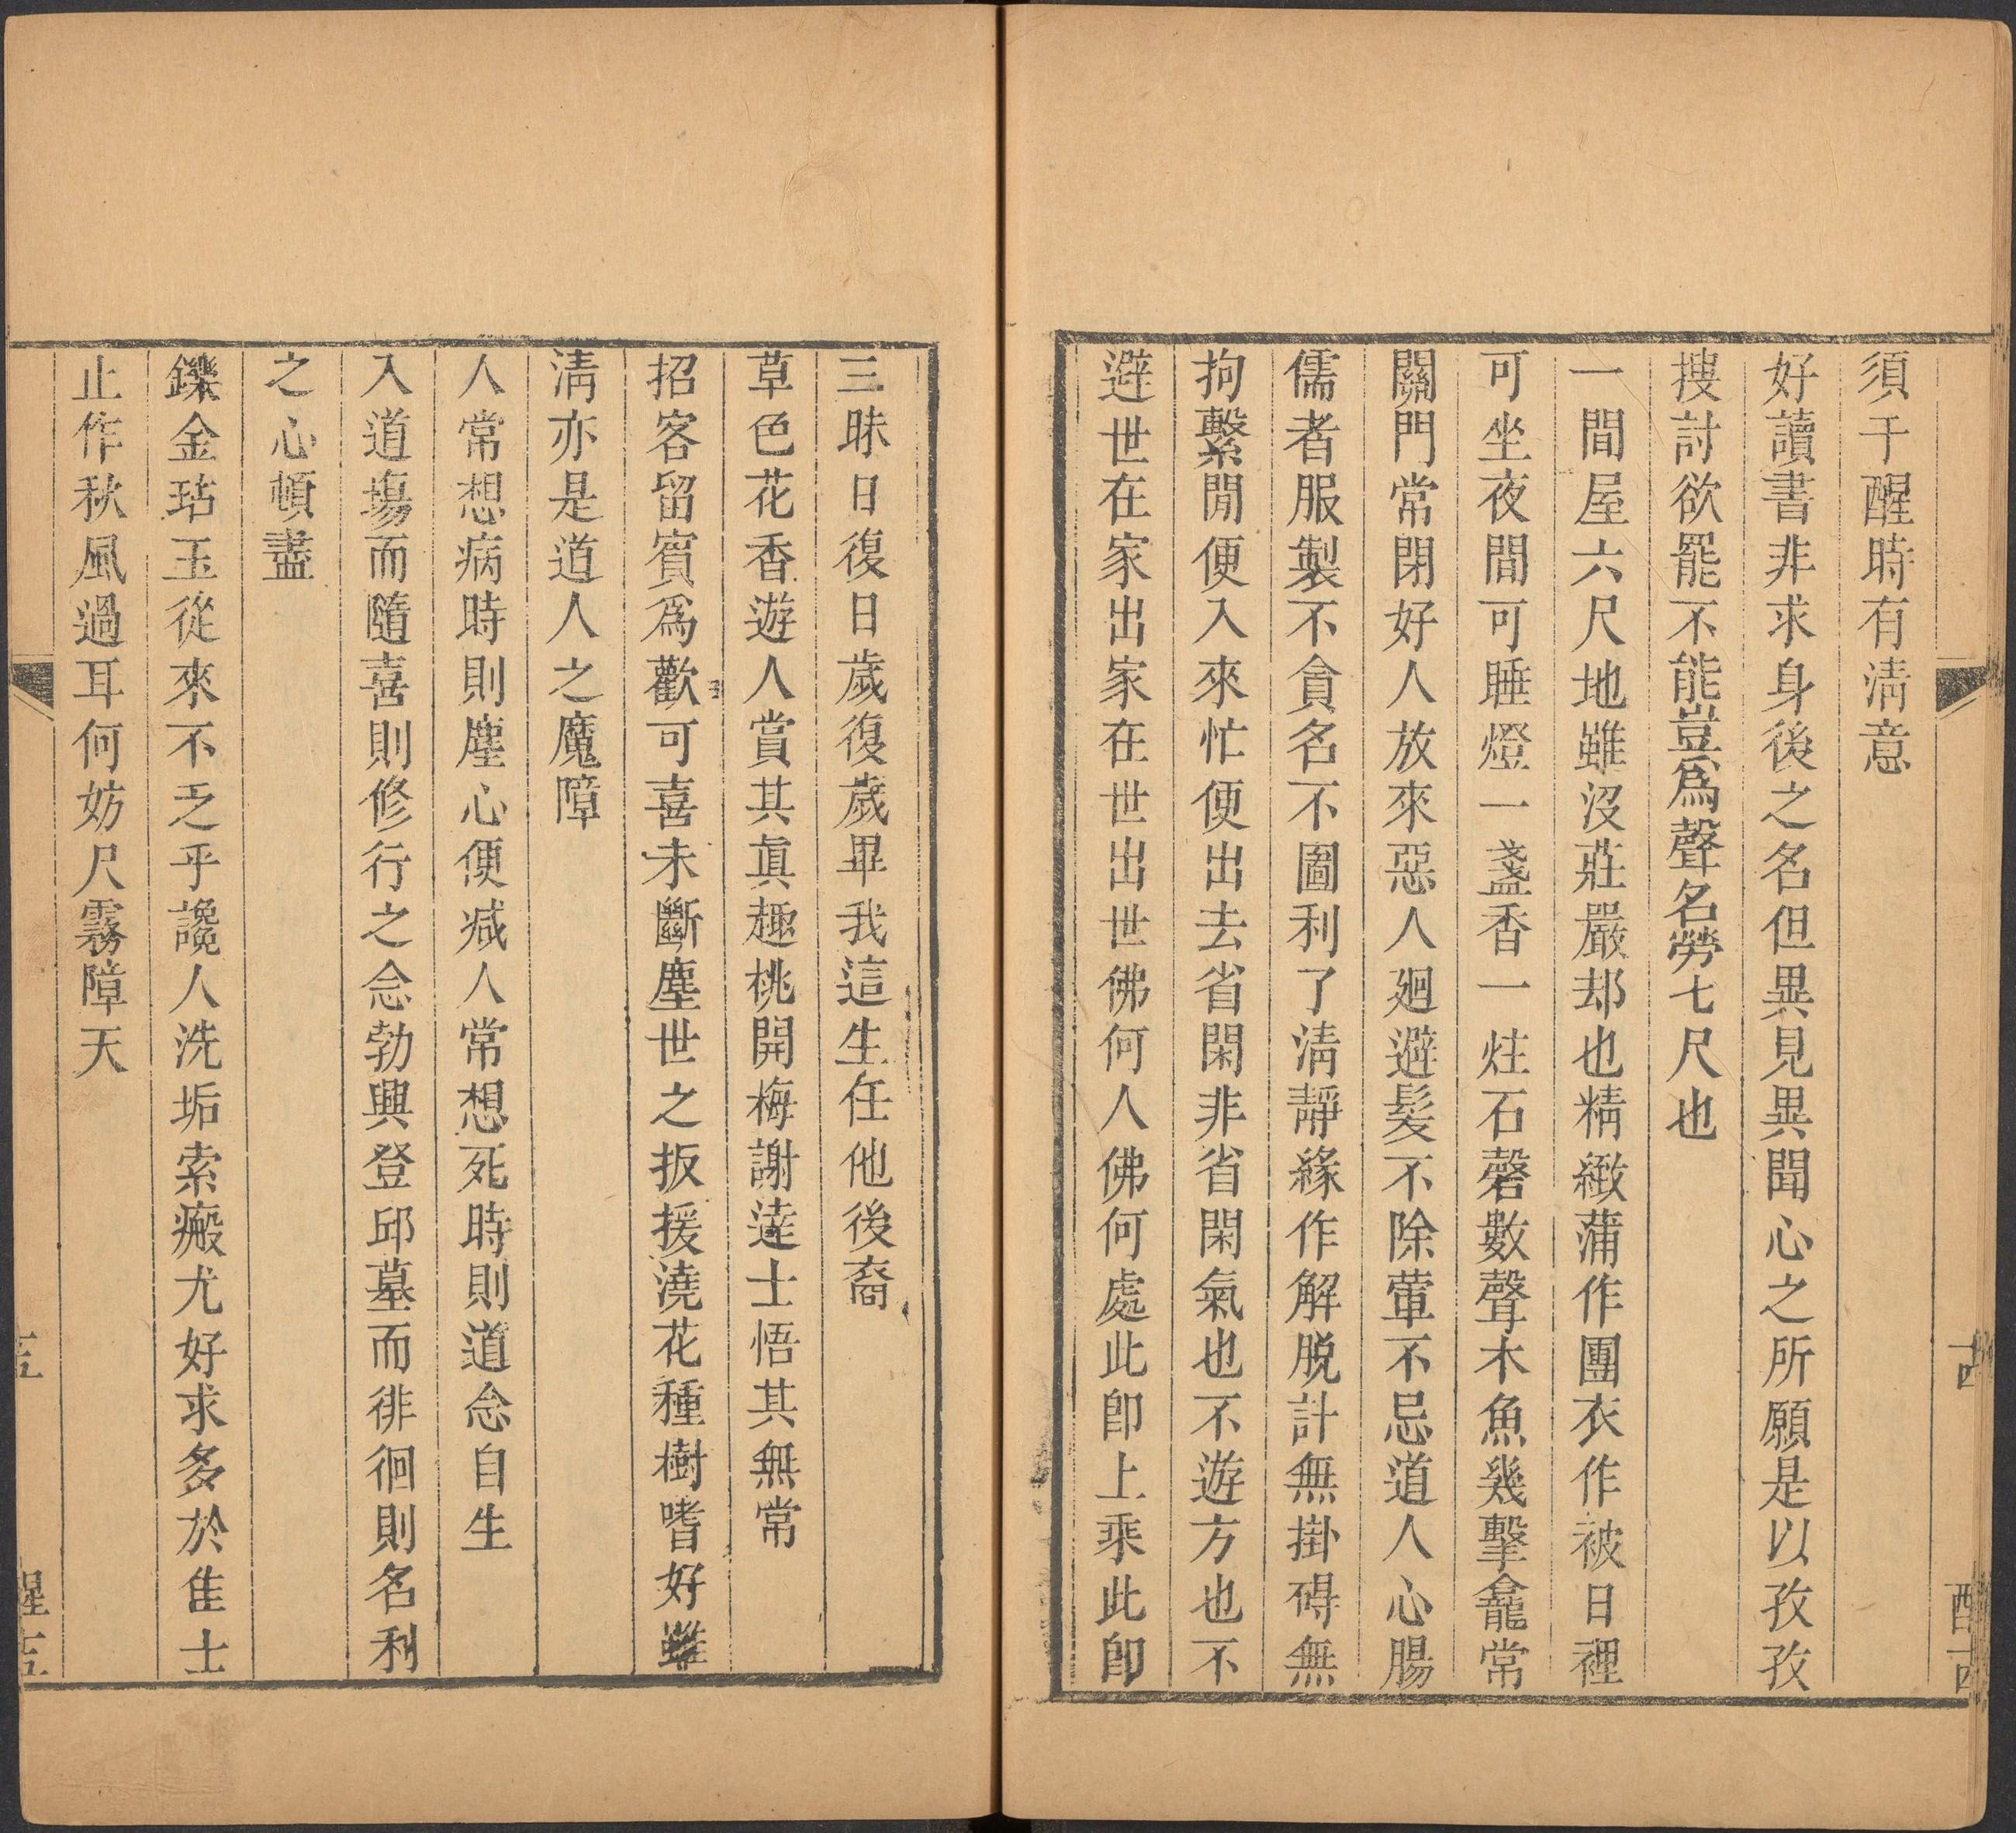 須于醒時有清意
好讀書非求身後之名但異見異聞心之所願是以孜孜
搜討欲罷不能豈爲聲名勞七尺也
一間屋六尺地雖沒莊嚴却也精緻蒲作團衣作被日裡
可坐夜間可睡燈一盞香一炷石磬數聲木魚幾擊龕常
關門常閉好人放來惡人廻避髮不除葷不忌道人心腸
儒者服製不貪名不圖利了清靜緣作解脫計無掛碍無
拘繫閒便入來忙便出去省閑非省閑氣也不遊方也不
避世在家出家在世出世佛何人佛何處此卽上乘此卽
三昧日復日歲復歲畢我這生任他後裔
草色花香遊人賞其眞趣桃開梅謝達士悟其無常
招客留賓爲歡可喜未斷塵世之扳援澆花種樹嗜好雖
清亦是道人之魔障
人常想病時則塵心便减人常想死時則道念自生
入道塲而隨喜則修行之念勃興登邱墓而徘徊則名利
之心頓盡
鑠金玷玉從來不乏乎讒人洗垢索瘢尤好求多於隹士
止作秋風過耳何妨尺霧障天